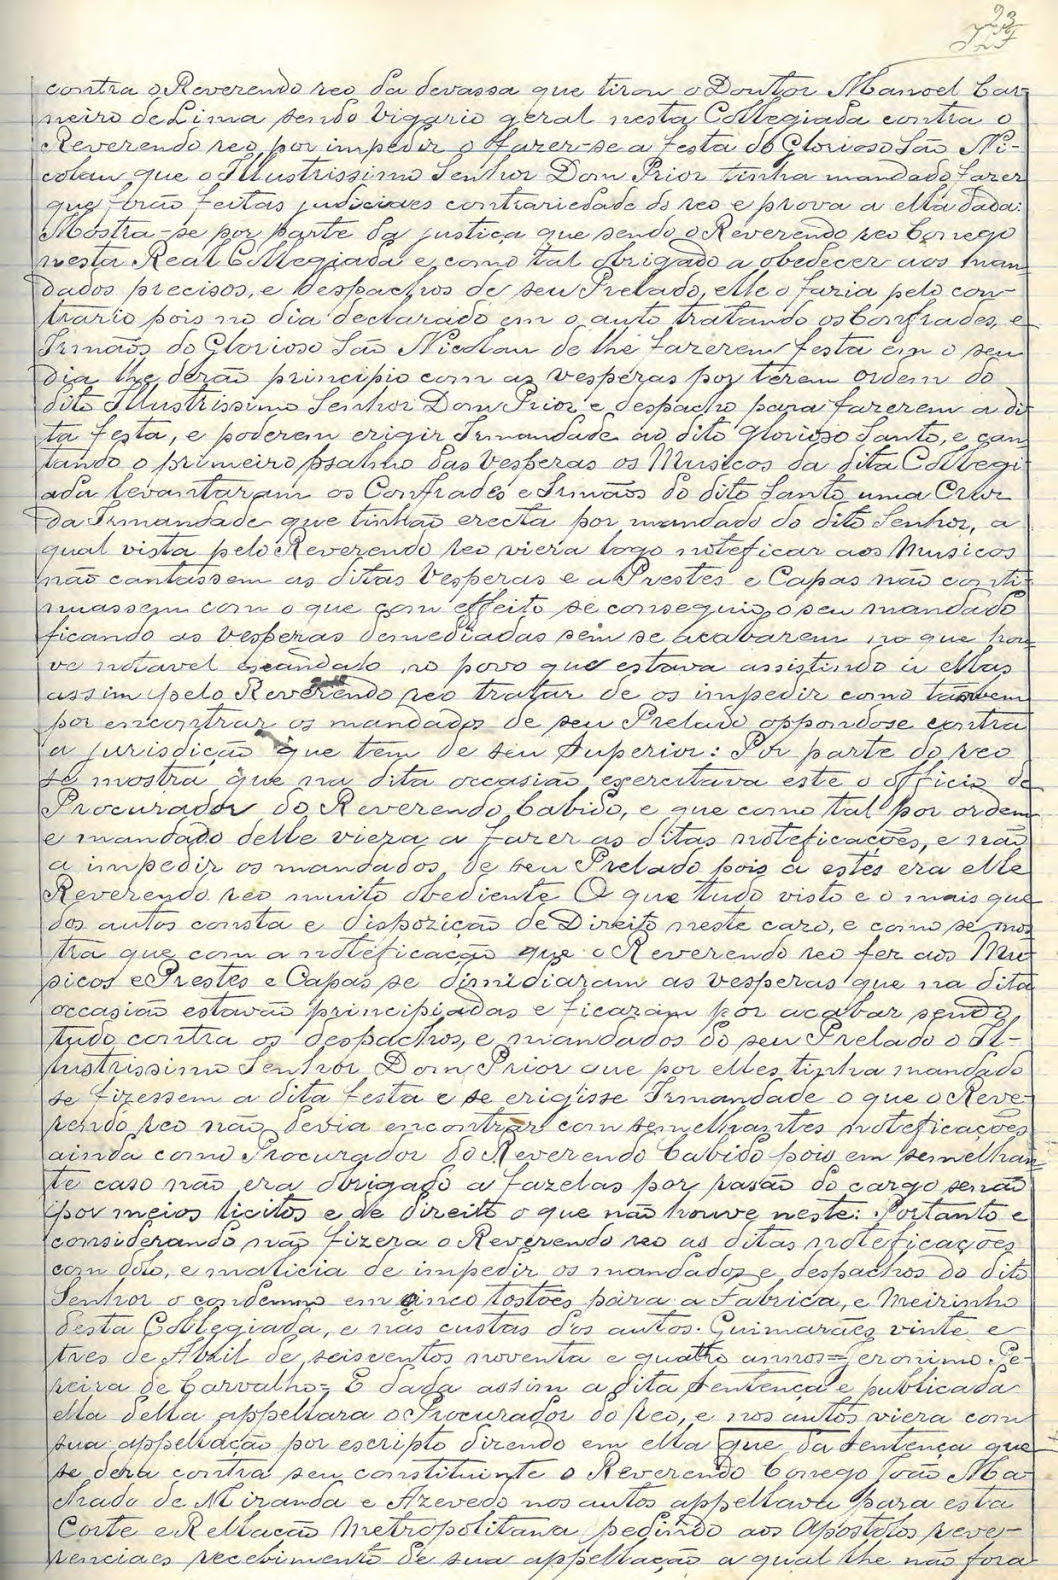 23
contra o Reverendo reo da devassa que tirou o Doutor Manoel Car-
neiro de Lima sendo Vigario geral nesta Collegiada contra o
Reverendo reo por impedir o fazer-se a festa do Glorioso São Ni-
colau que o Illustrissimo Senhor Dom Prior tinha mandado fazer
que forão feitas judiciaes contrariedade do reo e prova a ella dada:
Mostra-se por parte da justiça que sendo o Reverendo reo Conego
nesta Real Collegiada e como tal obrigado a obedecer aos man-
dados precisos, e despachos de seu Prelado, elle o faria pelo con-
trario pois no dia declarado em o auto tratando os Confrades, e
Irmãos do Glorioso São Nicolau de lhe fazerem festa em o seu
dia lhe derão principio com as vesperas por terem ordem do
dito Illustrissimo Senhor Dom Prior e despacho para fazerem a di-
ta festa, e poderem erigir Irmandade ao dito Glorioso Santo, e can-
tando o primeiro psalmo das Vesperas os Musicos da dita Collegi-
ada levantaram os Confrades e Irmãos do dito Santo uma Cruz
da Irmandade que tinhão erecta por mandado do dito Senhor, a
qual vista pelo Reverendo reo viera logo noteficar aos Musicos
não cantassem as ditas Vesperas e a Prestes e Capas não conti-
nuassem com o que com effeito se conseguio o seu mandado
ficando as vesperas demediadas sem se acabarem no que hou-
ve notavel escandalo no povo que estava assistindo a ellas
assim pelo Reverendo reo tratar de os impedir como tambem
por encontrar os mandados de seu Prelado oppondose contra
a jurisdição que tem de seu Superior: Por parte do reo
se mostra que na dita occasião exercitava este o officio de
Procurador do Reverendo Cabido, e que como tal por ordem
e mandado delle viera a fazer as ditas noteficações, e não
a impedir os mandados de seu Prelado pois a estes era elle
Reverendo reo muito obediente O que tudo visto e o mais que
dos autos consta e dispozição de Direito neste cazo, e como se mos-
tra que com a noteficação que o Reverendo reo fez aos Mu-
sicos e Prestes e Capas se dimidiaram as vesperas que na dita
occasião estavão principiadas e ficaram por acabar sendo
tudo contra os despachos, e mandados do seu Prelado o Il-
lustrissimo Senhor Dom Prior que por elles tinha mandado
se fizessem a dita festa e se erigisse Irmandade o que o Reve-
rendo reo não devia encontrar com semelhantes noteficações
ainda como Procurador do Reverendo Cabido pois em semelhan-
te caso não era obrigado a fazelas por rasão do cargo senão
por meios licitos e de direito o que não houve neste: Portanto e
considerando não fizera o Reverendo reo as ditas noteficações
com dolo, e malicia de impedir os mandados e despachos do dito
Senhor o condemno em cinco tostões para a Fabrica, e Meirinho
desta Collegiada, e nas custas dos autos. Guimarães vinte e
tres de Abril de seiscentos noventa e quatro annos = Jeronimo Pe-
reira de Carvalho = E dada assim a dita sentença e publicada
ella della appellara o Procurador do reo, e nos autos viera com
sua appellação por escripto dizendo em ella que da sentença que
se dera contra seu constituinte o Reverendo Conego João Ma-
chado de Miranda e Azevedo nos autos appellava para esta
Corte e Rellação Metropolitana pedindo aos Apostolos reve-
renciaes recebimento de sua appellação a qual lhe não fora